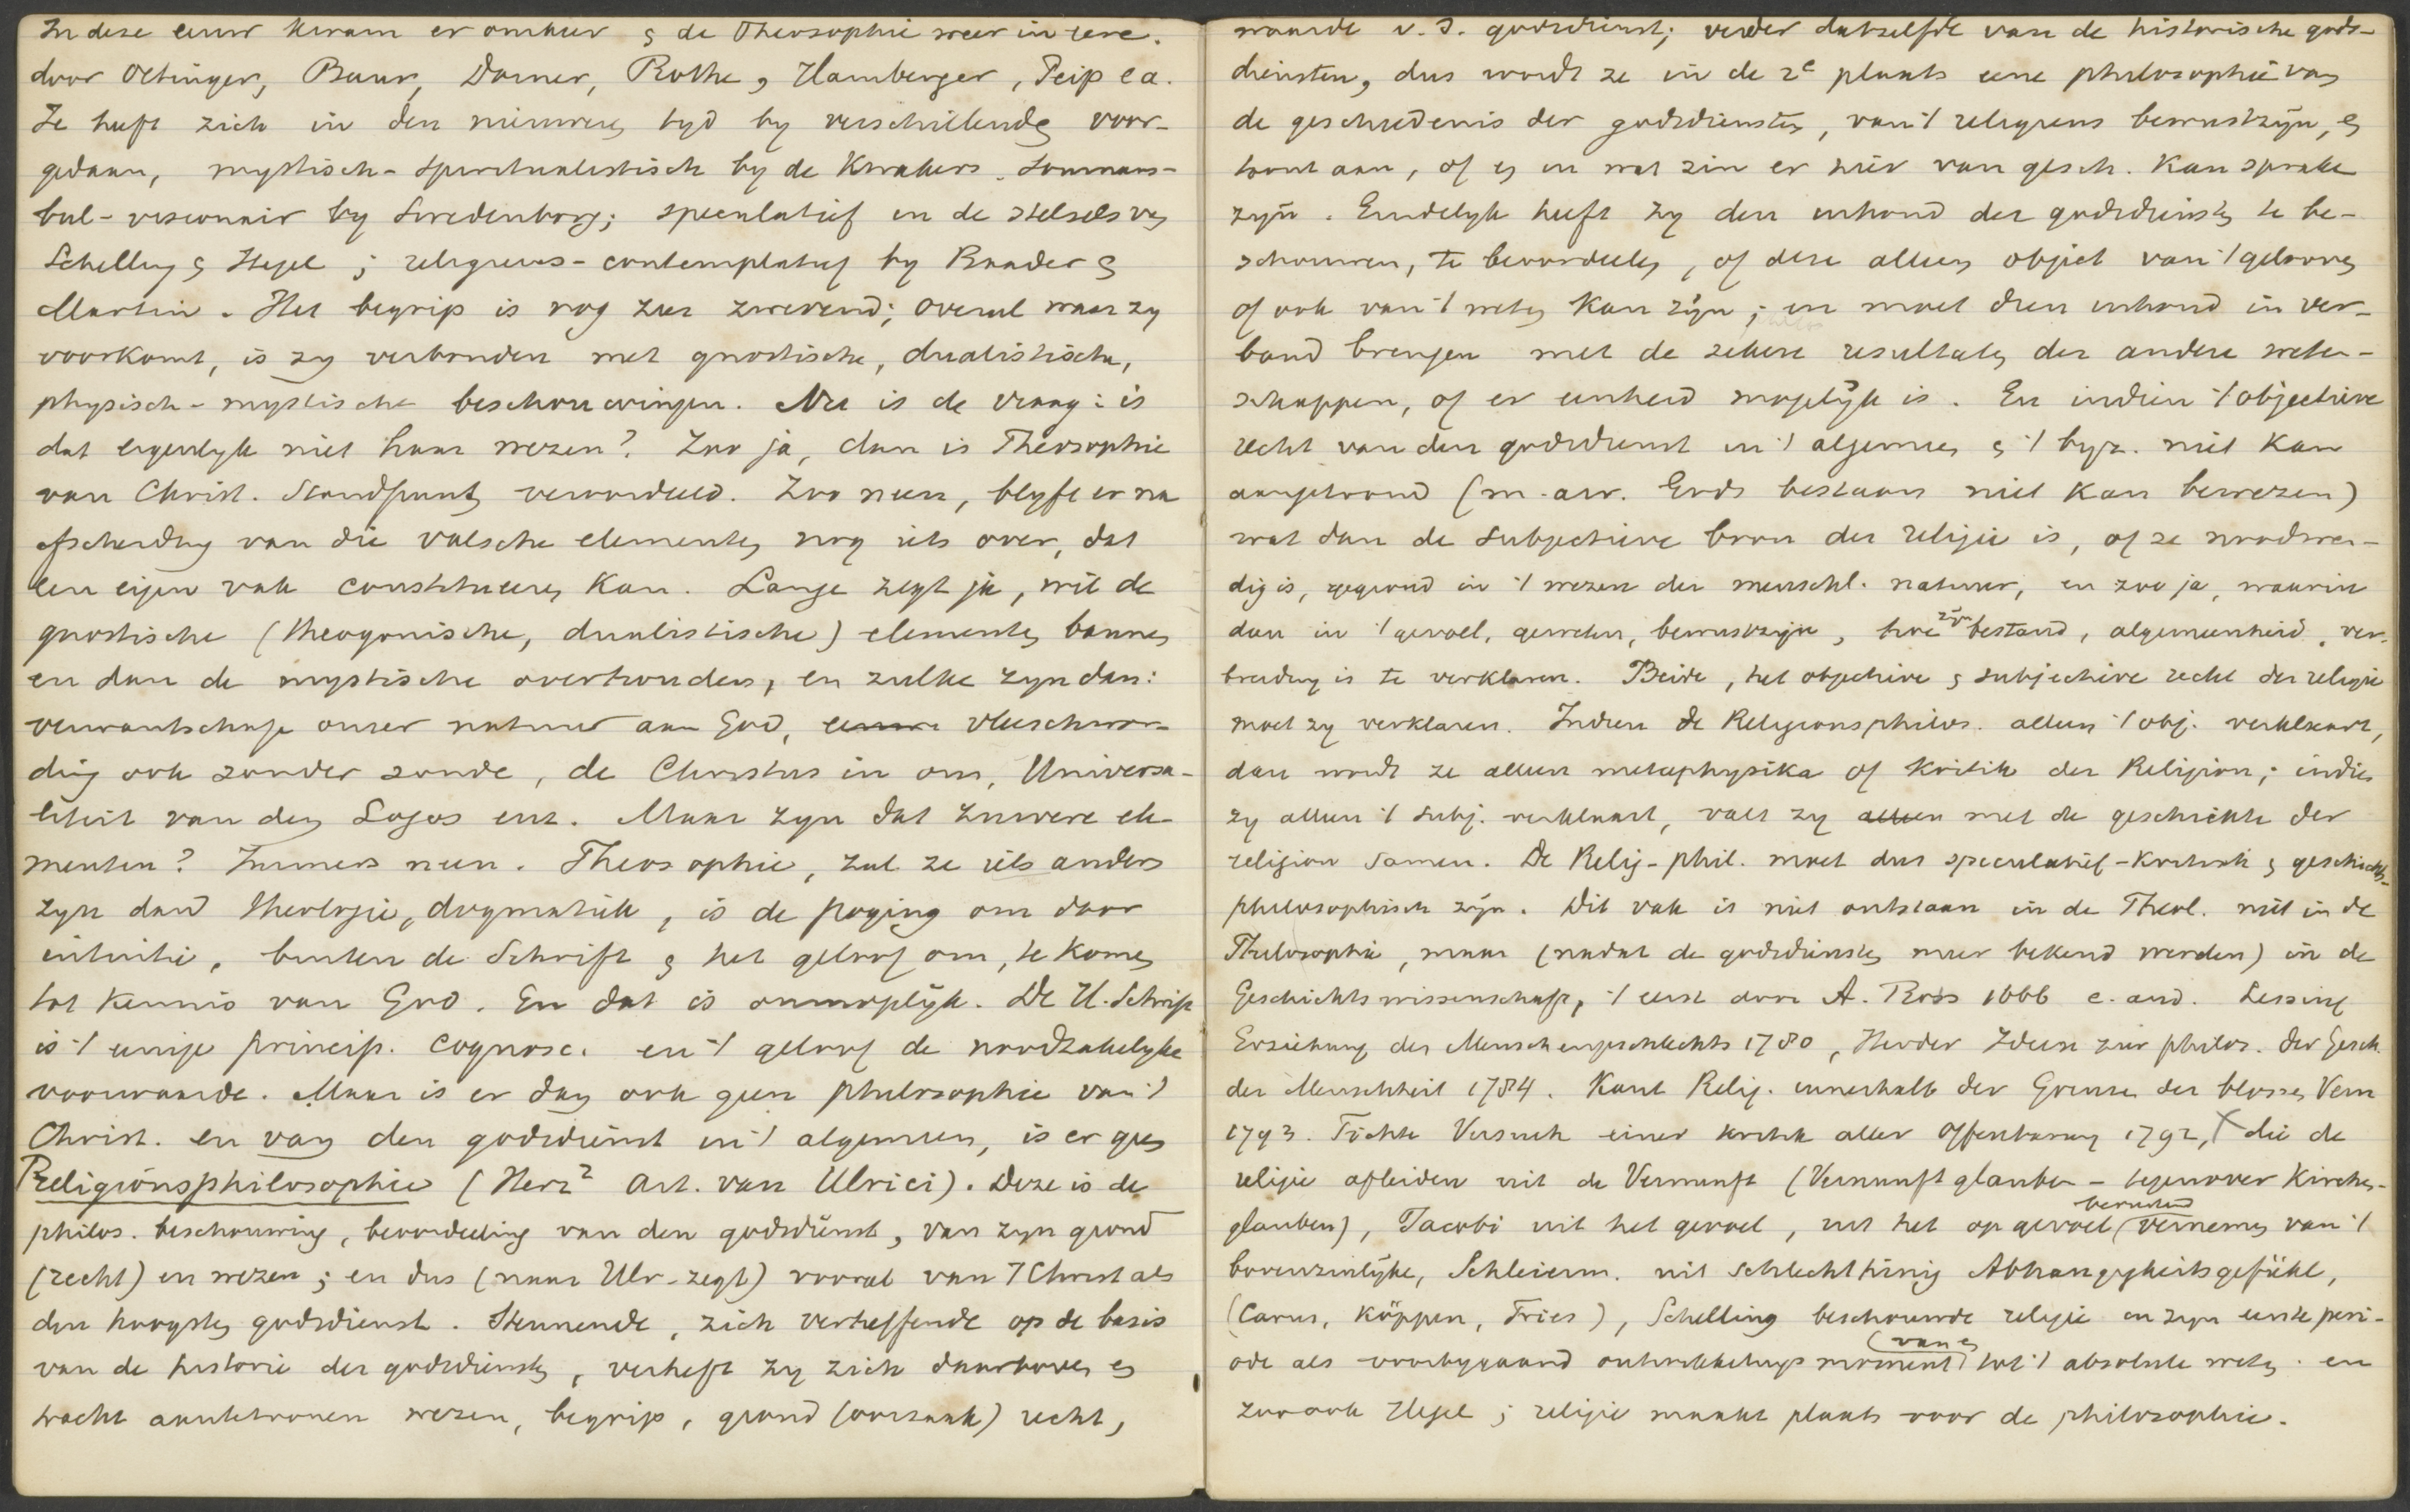 In deze eeuw kwam er omkeer & de Theosophie weer in eere.
door Oetinger, Baur, Dorner, Rothe, Hamberger, Peip e a.
Ze heeft zich in den nieuwen tyd by verschillende voor-
gedaan, mystisch-spiritualistisch by de Kwakers, somnam-
bul-visionair by Swedenborg; speculatief in de stelsels van
Schelling & Hegel; religieus-contemplatief by Baader &
Martin. Het begrip is nog zeer zwevend; overal waar zy
voorkomt, is zy verbonden met gnostische, dualistische,
physisch-mystische beschouwingen. Nu is de vraag: is
dat eigenlyk niet haar wezen? Zoo ja, dan is Theosophie
van Christ. Standpunt veroordeeld. Zoo neen, blyft er na
afscheiding van die valsche elementen nog iets over, dat
een eigen vak constitueeren kan. Lange zegt ja, wil de
gnostische (theogonische, dualistische) elementen bannen
en dan de mystische overhouden, en zulke zyn dan:
verwantschap onzer natuur aan God, vleeschwor-
ding ook zonder zonde, de Christus in ons, Universa-
liteit van den Logos enz. Maar zyn dat zuivere ele-
menten? Immers neen. Theosophie, zal ze iets anders
zyn dan theologie, dogmatiek, is de poging om door
intuitie, buiten de Schrift & het geloof om, te komen
tot kennis van God. En dat is onmogelijk. De H. Schrift
is 't eenige princip. cognosc. en 't geloof de noodzakelyke
voorwaarde. Maar is er dan ook geen philosophie van 't
Christ. en van den godsdienst in 't algemeen, is er geen
Religionsphilosophie (Herz² Art. van Ulrici). Deze is de
philos. beschouwing, beoordeeling van den godsdienst, van zyn grond
(recht) en wezen; en dus (naar Ulr. zegt) vooral van 't Christ als
den hoogsten godsdienst. Steunende, zich verheffende op de basis
van de historie der godsdiensten, verheft zy zich daarboven en
tracht aantetoonen wezen, begrip, grond (oorzaak) recht,
waarde v. d. godsdienst; verder datzelfde van de historische gods-
diensten, dus wordt ze in de 2e plaats eene philosophie van
de geschiedenis der godsdiensten, van 't religieus bewustzijn, en
toont aan, of en in wat zin er hier van gesch. kan sprake
zyn. Eindelyk heeft zy den inhoud der godsdiensten te be-
schouwen, te beoordeelen, of deze alleen object van 't gelooven
of ook van 't weten kan zijn; en moet dien inhoud in ver-
band brengen met de zekere resultaten der andere weten-
schappen, of er eenheid mogelijk is. En indien 't objectieve
recht van den godsdienst in 't algemeen & 't byz. niet kan
aangetoond (m.a.w. Gods bestaan niet kan bewezen)
wat dan de subjectieve bron der religie is, of ze noodwen-
dig is, gegrond in 't wezen der menschl. natuur, en zoo ja, waarin
dan in 't gevoel, geweten, bewustzijn, hoe zijn bestand, algemeenheid, ver-
breiding is te verklaren. Beide, het objectieve & subjectieve recht der religie
moet zy verklaren. Indien de Religionsphilos. alleen 't obj. verklaart,
dan wordt ze alleen metaphysika of Kritik der Religion; indien
zy alleen 't subj. verklaart, valt zy alleen met de geschichte der
religion samen. De Relig-phil. moet dus speculatief-kritisch & geschichts-
philosophisch zijn. Dit vak is niet ontstaan in de Theol. niet in de
Philosophie, maar (nadat de godsdiensten meer bekend werden) in de
Geschichtswissenschaft, 't eerst door A. Ross 1666 e. and. Lessing
Erziehung des Menschengeschlechts 1780, Herder Ideen zur philos. der Gesch.
der Menschheit 1784. Kant Relig. innerhalb der Grenzen der blossen Vern
1793. Fichte Versuch einer Kritik aller Offenbarung 1792, die de
religie afleiden uit de Vernunft (Vernunftglauben - tegenover Kirchen-
glauben), Jacobi uit het gevoel, uit het op gevoel berustend vernemen van 't
bovenzinlijke, Schleierm. uit schlechthinig Abhangigkeitsgefühl,
(Carus, Köppen, Fries), Schelling beschouwde religie in zyn eerste peri-
ode als voorbygaand ontwikkelings moment van en tot 't absolute weten. en
zoo ook Hegel; religie maakt plaats voor de philosophie.